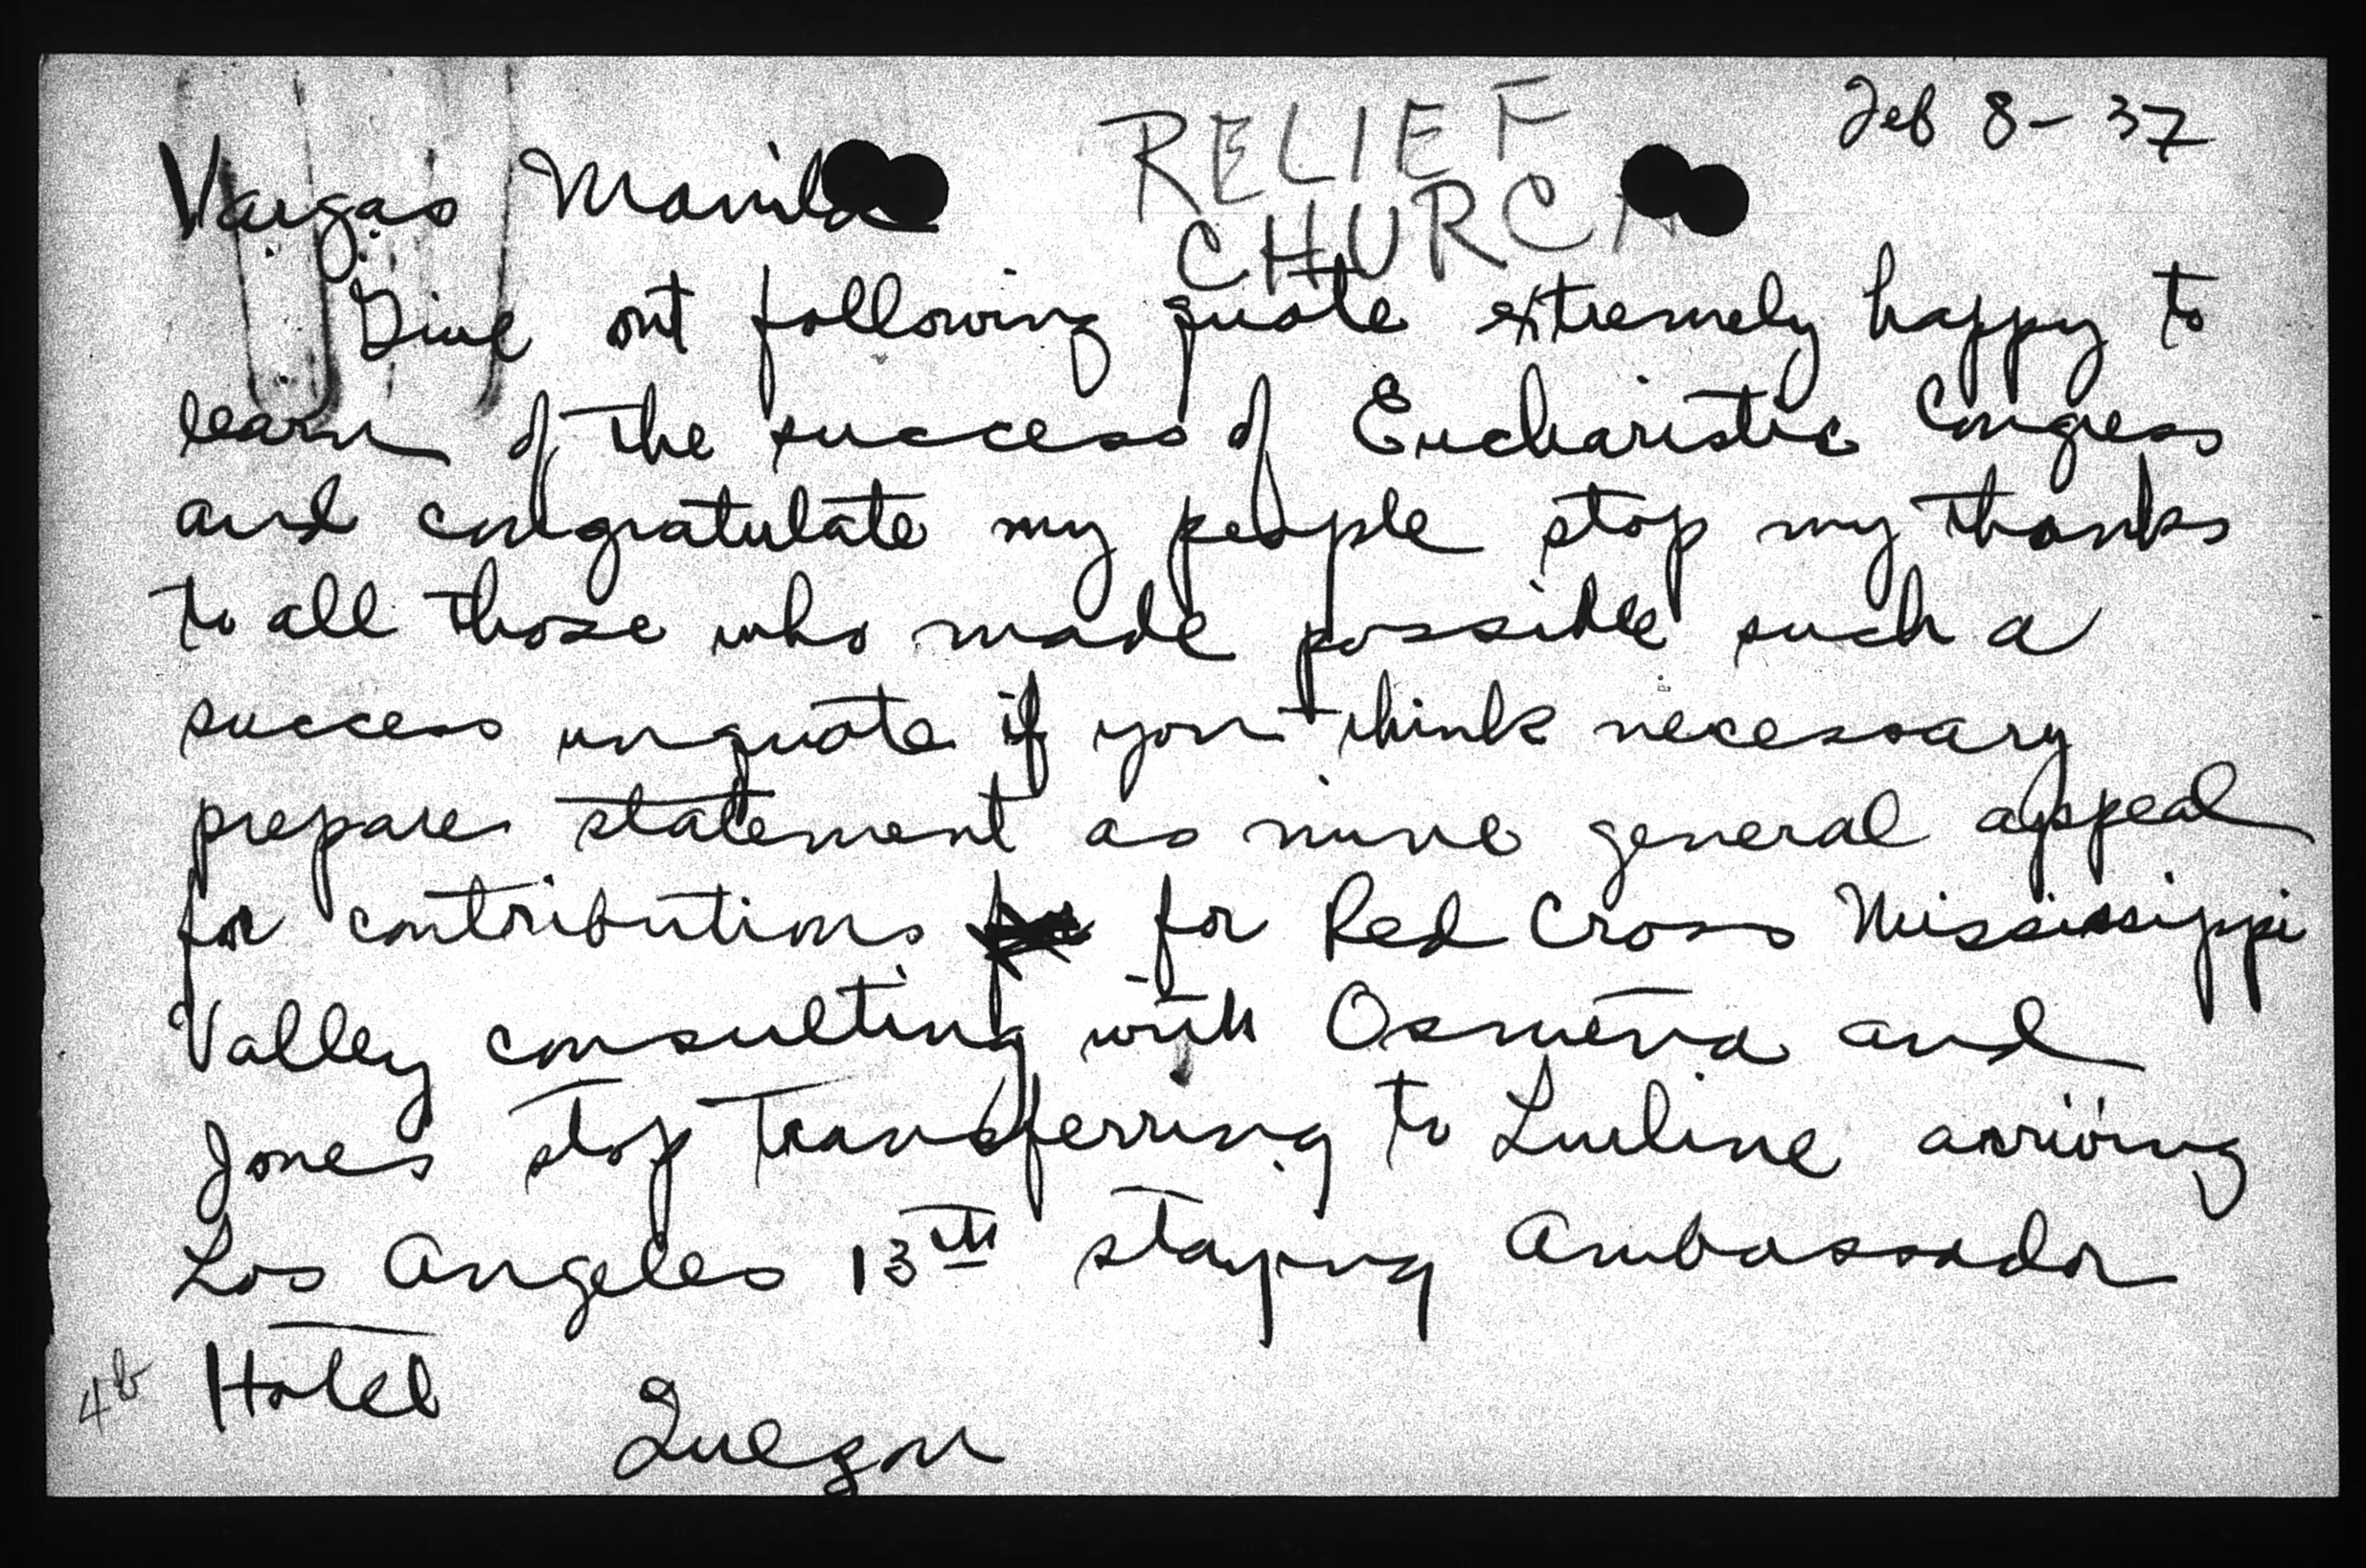 Feb 8 - 37
RELIEF
Vargas Manila
CHURCH
Give out following quote extremely happy to
learn of the success of Eucharistic Congress
and congratulate my people stop my thanks
to all those who made possible such a
success unquote if you think necessary
prepare statement as mine general appeal
for contributions for Red Cross Mississippi
Valley consulting with Osmeña and
Jones stop transferring to Lurline arriving
Los Angeles 13th staying Ambassador
Hotel
4b
Quezon